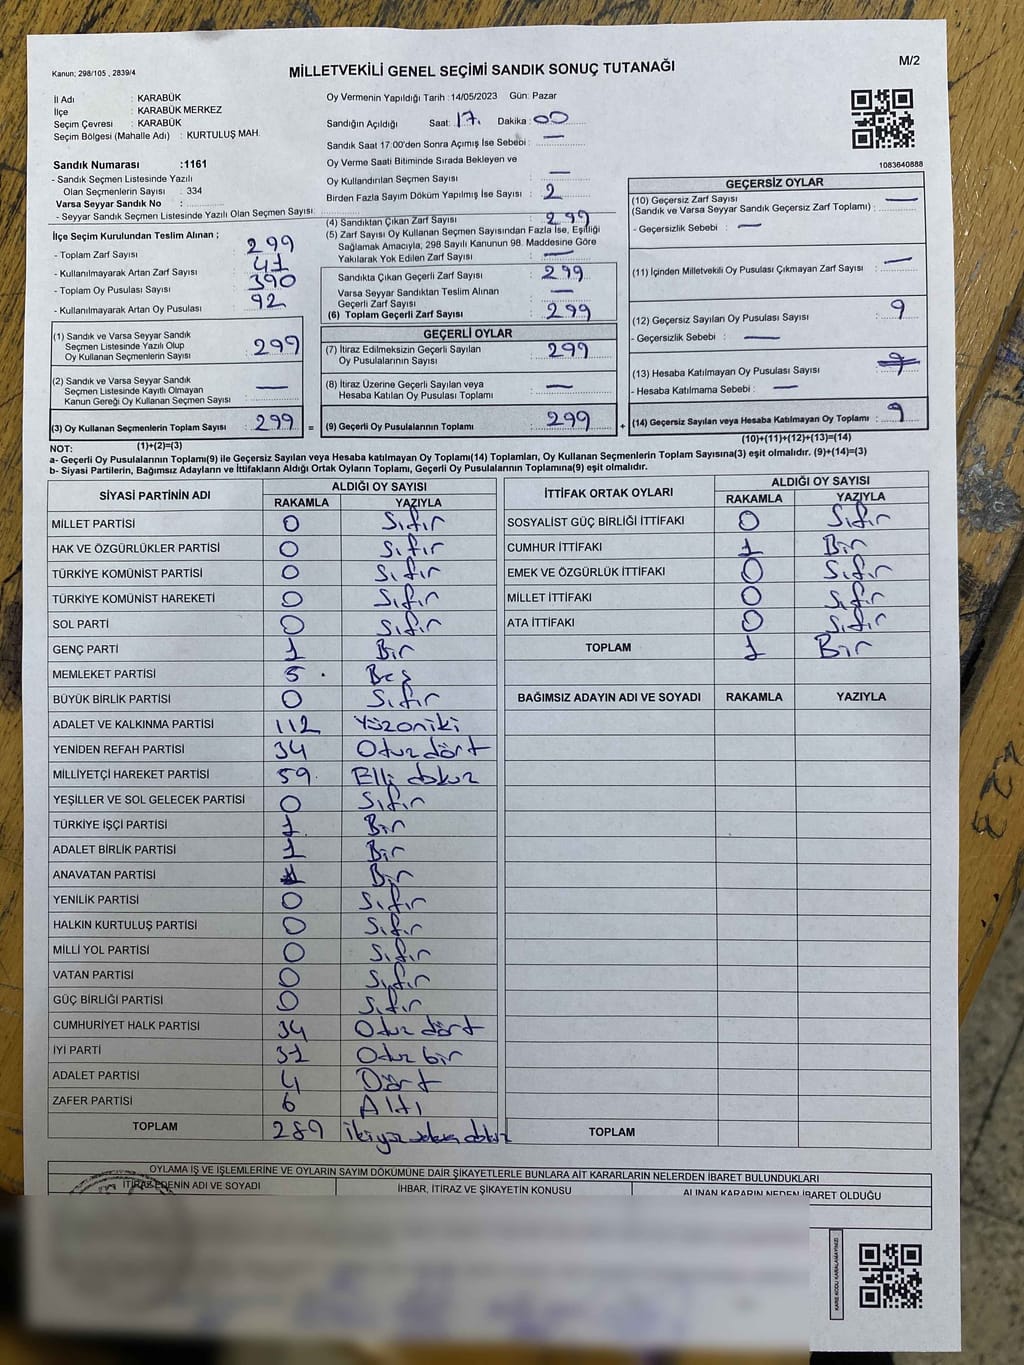 Kanun; 298/105 , 2839/4
MİLLETVEKİLİ GENEL SEÇİMİ SANDIK SONUÇ TUTANAĞI
M/2
İl Adı : KARABÜK
İlçe : KARABÜK MERKEZ
Seçim Çevresi : KARABÜK
Seçim Bölgesi (Mahalle Adı) : KURTULUŞ MAH.
Sandık Numarası :1161
- Sandık Seçmen Listesinde Yazılı
Olan Seçmenlerin Sayısı : 334
Varsa Seyyar Sandık No :
- Seyyar Sandık Seçmen Listesinde Yazılı Olan Seçmen Sayısı:
İlçe Seçim Kurulundan Teslim Alınan ;
- Toplam Zarf Sayısı : 299
- Kullanılmayarak Artan Zarf Sayısı : 41
- Toplam Oy Pusulası Sayısı : 390
- Kullanılmayarak Artan Oy Pusulası : 92
(1) Sandık ve Varsa Seyyar Sandık
Seçmen Listesinde Yazılı Olup
Oy Kullanan Seçmenlerin Sayısı : 299
(2) Sandık ve Varsa Seyyar Sandık
Seçmen Listesinde Kayıtlı Olmayan
Kanun Gereği Oy Kullanan Seçmen Sayısı : —
(3) Oy Kullanan Seçmenlerin Toplam Sayısı : 299 =
(1)+(2)=(3)
Oy Vermenin Yapıldığı Tarih :14/05/2023 Gün: Pazar
Sandığın Açıldığı Saat: 17. Dakika : 00
Sandık Saat 17:00'den Sonra Açımış İse Sebebi : —
Oy Verme Saati Bitiminde Sırada Bekleyen ve
Oy Kullandırılan Seçmen Sayısı : —
Birden Fazla Sayım Döküm Yapılmış İse Sayısı : 2
(4) Sandıktan Çıkan Zarf Sayısı : 299
(5) Zarf Sayısı Oy Kullanan Seçmen Sayısından Fazla İse, Eşitliği
Sağlamak Amacıyla, 298 Sayılı Kanunun 98. Maddesine Göre
Yakılarak Yok Edilen Zarf Sayısı : —
Sandıkta Çıkan Geçerli Zarf Sayısı : 299
Varsa Seyyar Sandıktan Teslim Alınan
Geçerli Zarf Sayısı : —
(6) Toplam Geçerli Zarf Sayısı : 299
GEÇERLİ OYLAR
(7) İtiraz Edilmeksizin Geçerli Sayılan
Oy Pusulalarının Sayısı : 299
(8) İtiraz Üzerine Geçerli Sayılan veya
Hesaba Katılan Oy Pusulası Toplamı : —
(9) Geçerli Oy Pusulalarının Toplamı : 299 +
1083640888
GEÇERSİZ OYLAR
(10) Geçersiz Zarf Sayısı
(Sandık ve Varsa Seyyar Sandık Geçersiz Zarf Toplamı) : —
- Geçersizlik Sebebi : —
(11) İçinden Milletvekili Oy Pusulası Çıkmayan Zarf Sayısı : —
(12) Geçersiz Sayılan Oy Pusulası Sayısı : 9
- Geçersizlik Sebebi : —
(13) Hesaba Katılmayan Oy Pusulası Sayısı :
- Hesaba Katılmama Sebebi : —
(14) Geçersiz Sayılan veya Hesaba Katılmayan Oy Toplamı : 9
(10)+(11)+(12)+(13)=(14)
NOT:
a- Geçerli Oy Pusulalarının Toplamı(9) ile Geçersiz Sayılan veya Hesaba katılmayan Oy Toplamı(14) Toplamları, Oy Kullanan Seçmenlerin Toplam Sayısına(3) eşit olmalıdır. (9)+(14)=(3)
b- Siyasi Partilerin, Bağımsız Adayların ve İttifakların Aldığı Ortak Oyların Toplamı, Geçerli Oy Pusulalarının Toplamına(9) eşit olmalıdır.
SİYASİ PARTİNİN ADI ALDIĞI OY SAYISI
RAKAMLA YAZIYLA
MİLLET PARTİSİ 0 Sıfır
HAK VE ÖZGÜRLÜKLER PARTİSİ 0 Sıfır
TÜRKİYE KOMÜNİST PARTİSİ 0 Sıfır
TÜRKİYE KOMÜNİST HAREKETİ 0 Sıfır
SOL PARTİ 0 Sıfır
GENÇ PARTİ 1 Bir
MEMLEKET PARTİSİ 5 Beş
BÜYÜK BİRLİK PARTİSİ 0 Sıfır
ADALET VE KALKINMA PARTİSİ 112 Yüzoniki
YENİDEN REFAH PARTİSİ 34 Otuz dört
MİLLİYETÇİ HAREKET PARTİSİ 59 Elli dokuz
YEŞİLLER VE SOL GELECEK PARTİSİ 0 Sıfır
TÜRKİYE İŞÇİ PARTİSİ 1 Bir
ADALET BİRLİK PARTİSİ 1 Bir
ANAVATAN PARTİSİ 1 Bir
YENİLİK PARTİSİ 0 Sıfır
HALKIN KURTULUŞ PARTİSİ 0 Sıfır
MİLLİ YOL PARTİSİ 0 Sıfır
VATAN PARTİSİ 0 Sıfır
GÜÇ BİRLİĞİ PARTİSİ 0 Sıfır
CUMHURİYET HALK PARTİSİ 34 Otuz dört
İYİ PARTİ 31 Otuz bir
ADALET PARTİSİ 4 Dört
ZAFER PARTİSİ 6 Altı
TOPLAM 289 ikiyüz seksen dokuz
İTTİFAK ORTAK OYLARI ALDIĞI OY SAYISI
RAKAMLA YAZIYLA
SOSYALİST GÜÇ BİRLİĞİ İTTİFAKI 0 Sıfır
CUMHUR İTTİFAKI 1 Bir
EMEK VE ÖZGÜRLÜK İTTİFAKI 0 Sıfır
MİLLET İTTİFAKI 0 Sıfır
ATA İTTİFAKI 0 Sıfır
TOPLAM 1 Bir
BAĞIMSIZ ADAYIN ADI VE SOYADI RAKAMLA YAZIYLA
TOPLAM
OYLAMA İŞ VE İŞLEMLERİNE VE OYLARIN SAYIM DÖKÜMÜNE DAİR ŞİKAYETLERLE BUNLARA AİT KARARLARIN NELERDEN İBARET BULUNDUKLARI
İTİRAZ EDENİN ADI VE SOYADI İHBAR, İTİRAZ VE ŞİKAYETİN KONUSU ALINAN KARARIN NEDEN İBARET OLDUĞU
KARE KODU KARALAMAYINIZ!